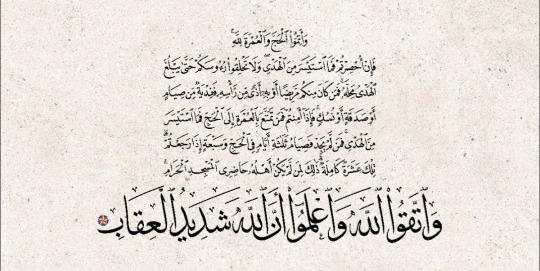 وَأَتِمُّوا۟ ٱلْحَجَّ وَٱلْعُمْرَةَ لِلَّهِ ۚ
فَإِنْ أُحْصِرْتُمْ فَمَا ٱسْتَيْسَرَ مِنَ ٱلْهَدْىِ ۖ وَلَا تَحْلِقُوا۟ رُءُوسَكُمْ حَتَّىٰ يَبْلُغَ
ٱلْهَدْىُ مَحِلَّهُۥ ۚ فَمَن كَانَ مِنكُم مَّرِيضًا أَوْ بِهِۦٓ أَذًى مِّن رَّأْسِهِۦ فَفِدْيَةٌ مِّن صِيَامٍ
أَوْ صَدَقَةٍ أَوْ نُسُكٍ ۚ فَإِذَآ أَمِنتُمْ فَمَن تَمَتَّعَ بِٱلْعُمْرَةِ إِلَى ٱلْحَجِّ فَمَا ٱسْتَيْسَرَ
مِنَ ٱلْهَدْىِ ۚ فَمَن لَّمْ يَجِدْ فَصِيَامُ ثَلَٰثَةِ أَيَّامٍ فِى ٱلْحَجِّ وَسَبْعَةٍ إِذَا رَجَعْتُمْ ۗ
تِلْكَ عَشَرَةٌ كَامِلَةٌ ۗ ذَٰلِكَ لِمَن لَّمْ يَكُنْ أَهْلُهُۥ حَاضِرِى ٱلْمَسْجِدِ ٱلْحَرَامِ ۚ
وَٱتَّقُوا۟ ٱللَّهَ وَٱعْلَمُوٓا۟ أَنَّ ٱللَّهَ شَدِيدُ ٱلْعِقَابِ